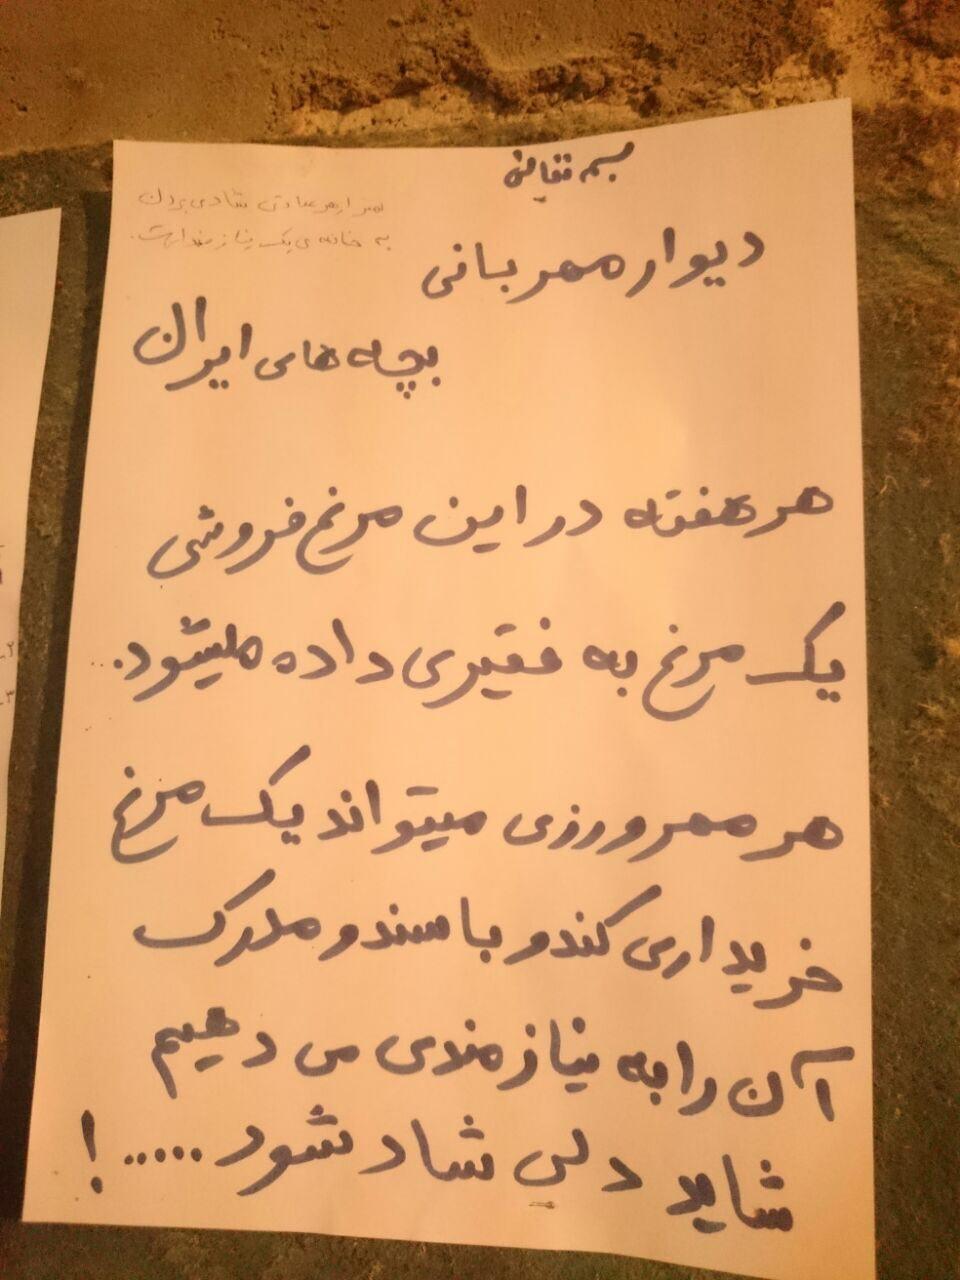 بسمه تعالی
هنر از هر عبادتی شادی بردن
به خانه‌ی یک نیازمند است.
دیوار مهربانی
بچه های ایران
هر هفته در این مرغ فروشی
یک مرغ به فقیری داده میشود.
هر مهرورزی میتواند یک مرغ
خریداری کند و با سند و مدرک
آن را به نیازمندی می دهیم
شاید دلی شاد شود ..... !